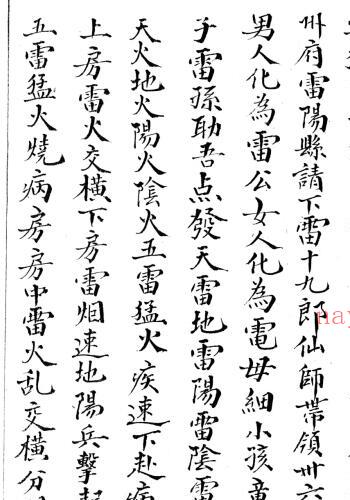 卅府雷陽縣請下雷十九郎仙師帶領卅六
男人化為雷公女人化為電母細小孩童
子雷孫助吾点發天雷地雷陽雷陰雷
天火地火陽火陰火五雷猛火疾速下赴病
上房雷火交橫下房雷烟速地陽兵擊
五雷猛火燒病房房中雷火乱交橫分